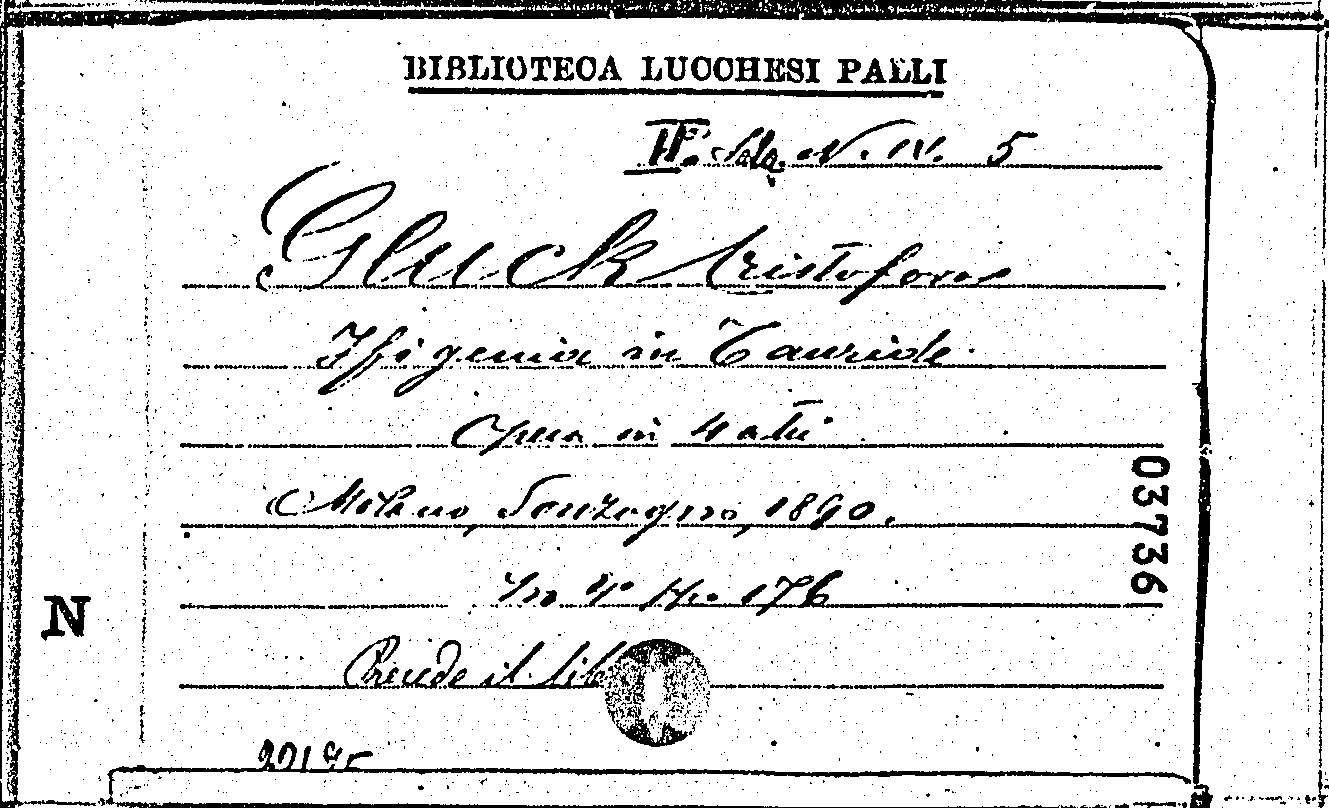 BIBLIOTECA LUCCHESI PALLI
IIa Sala N. IV. 5
Gluck Cristoforo
Ifigenia in Tauride
Opera in 4 atti
Milano, Sonzogno, 1890.
In 4° pp. 176
Precede il lib
03736
N